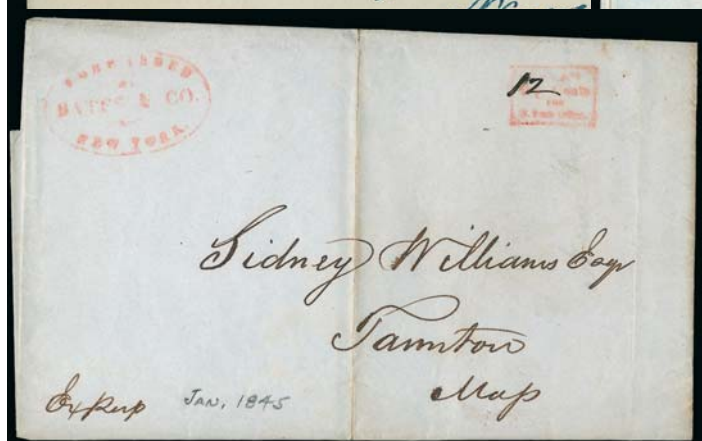 FORWARDED
BY
BATES & CO.
NEW YORK.
12
FOR
Sidney Williams Esqr
Taunton
Mass
JAN. 1845